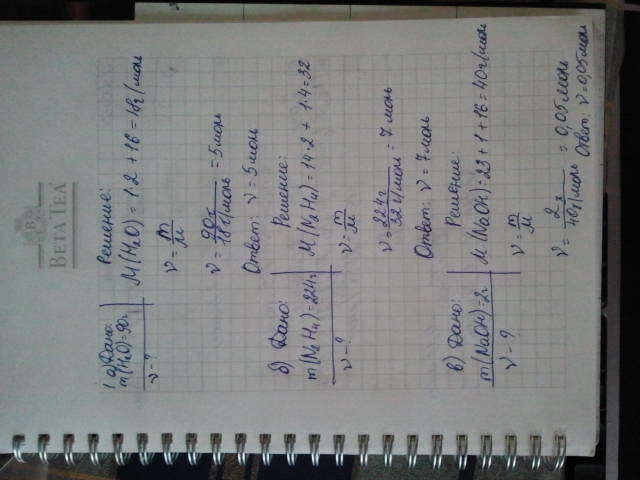 BETA TEA
1. а) Дано:
m(H₂O)=90г
ν-?
Решение:
M(H₂O)=1·2+16=18г/моль
ν=m/M
ν=90г/18г/моль=5моль
Ответ: ν=5моль
б) Дано:
m(N₂H₄)=224г
ν-?
Решение:
M(N₂H₄)=14·2+1·4=32
ν=m/M
ν=224г/32г/моль=7моль
Ответ: ν=7моль
в) Дано:
m(NaOH)=2г
ν-?
Решение:
M(NaOH)=23+1+16=40г/моль
ν=m/M
ν=2г/40г/моль=0,05моль
Ответ: ν=0,05моль